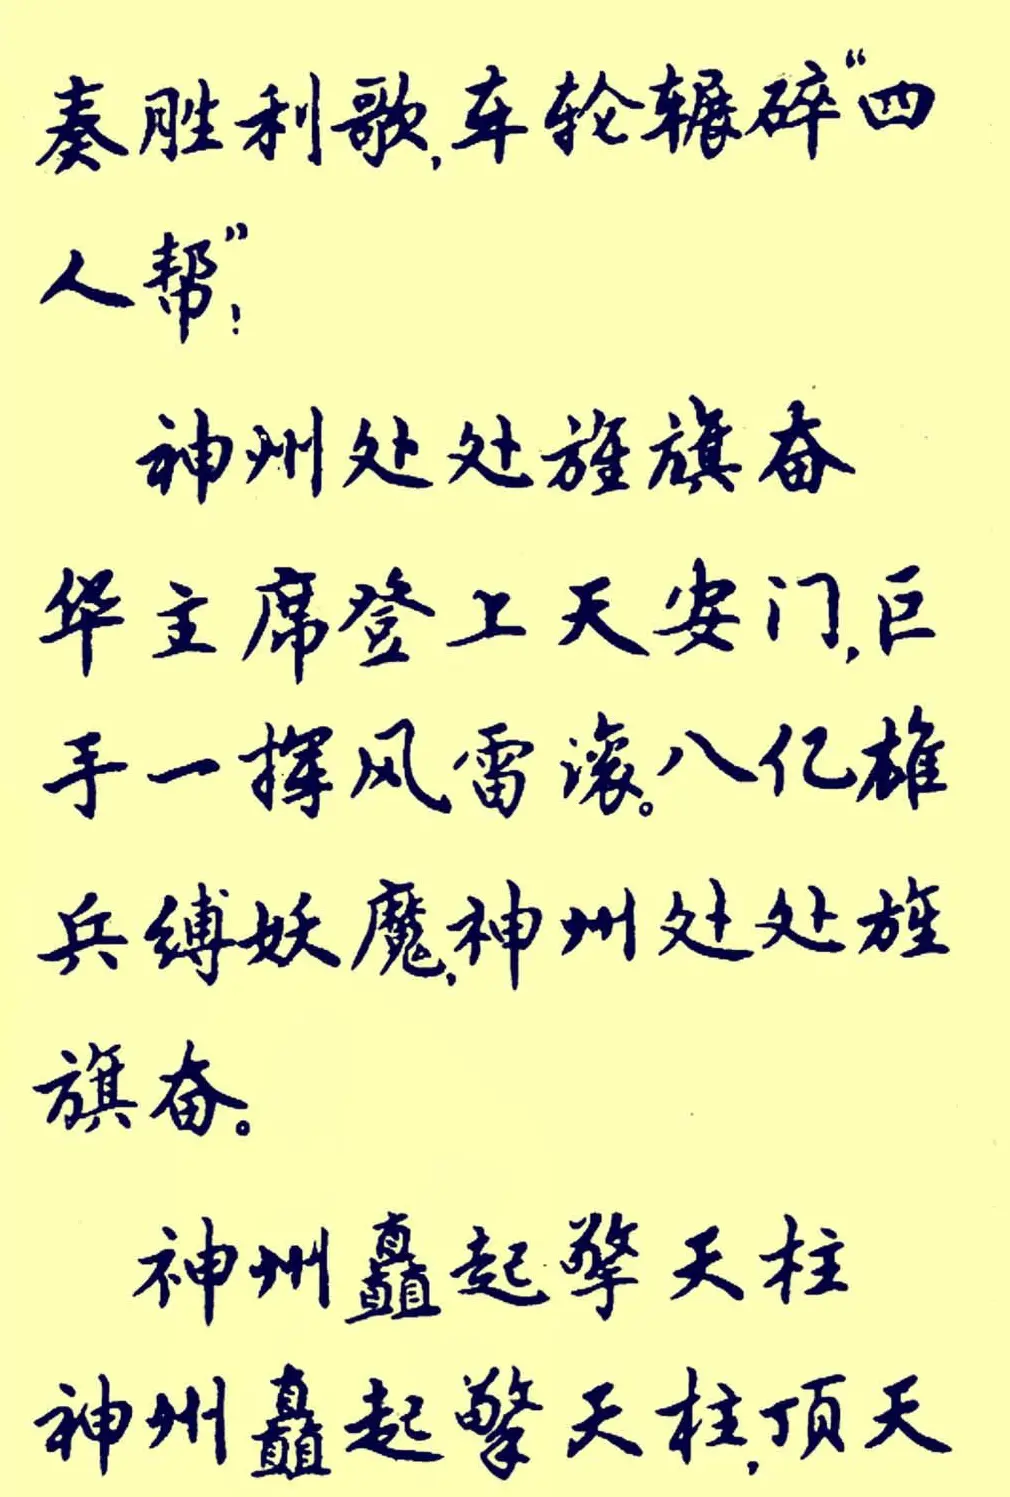 奏胜利歌,车轮辗碎“四
人帮”!
神州处处旌旗奋
华主席登上天安门,巨
手一挥风雷滚。八亿雄
兵缚妖魔,神州处处旌
旗奋。
神州矗起擎天柱
神州矗起擎天柱,顶天